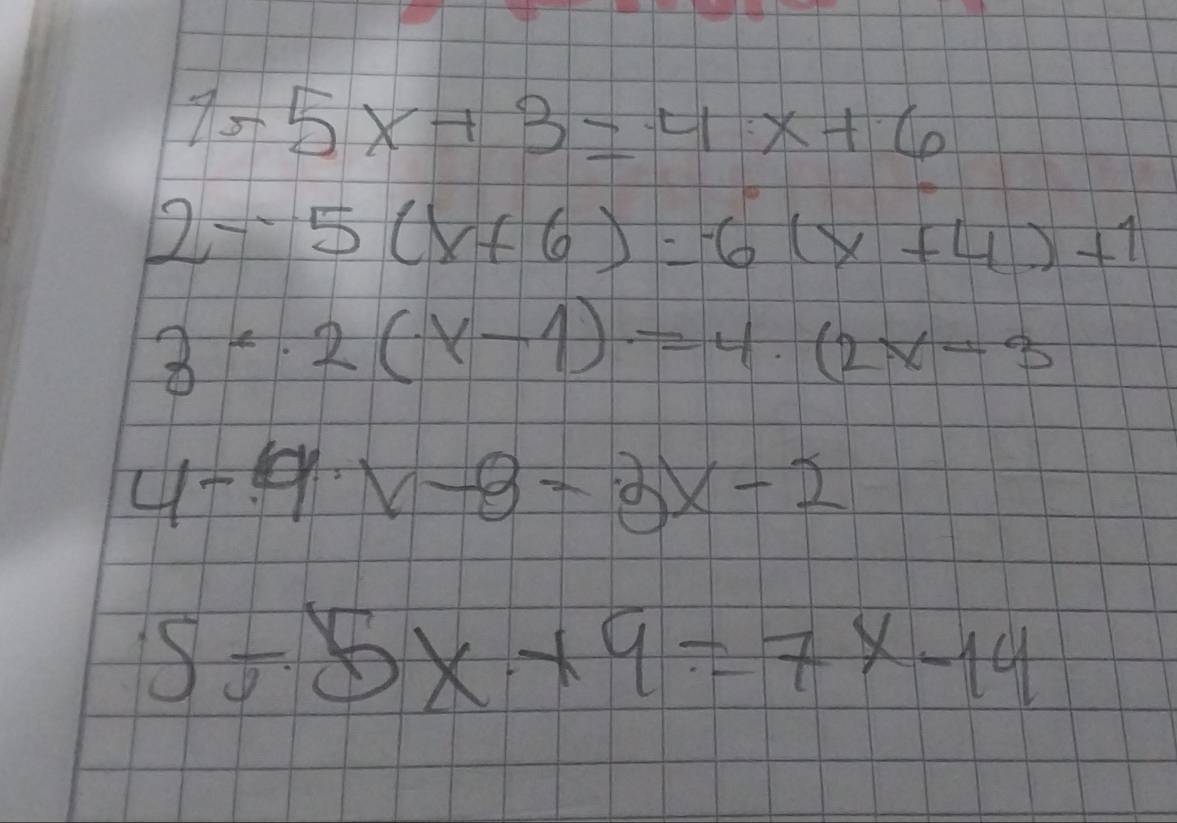 1- 5x + 3 = 4x + 6
2- 5(x+6) = 6(x+4)+1
3- 2(x-1) = 4(2x-3
4- 9x-8 = 3x-2
5- 5x + 9 = 7x - 14